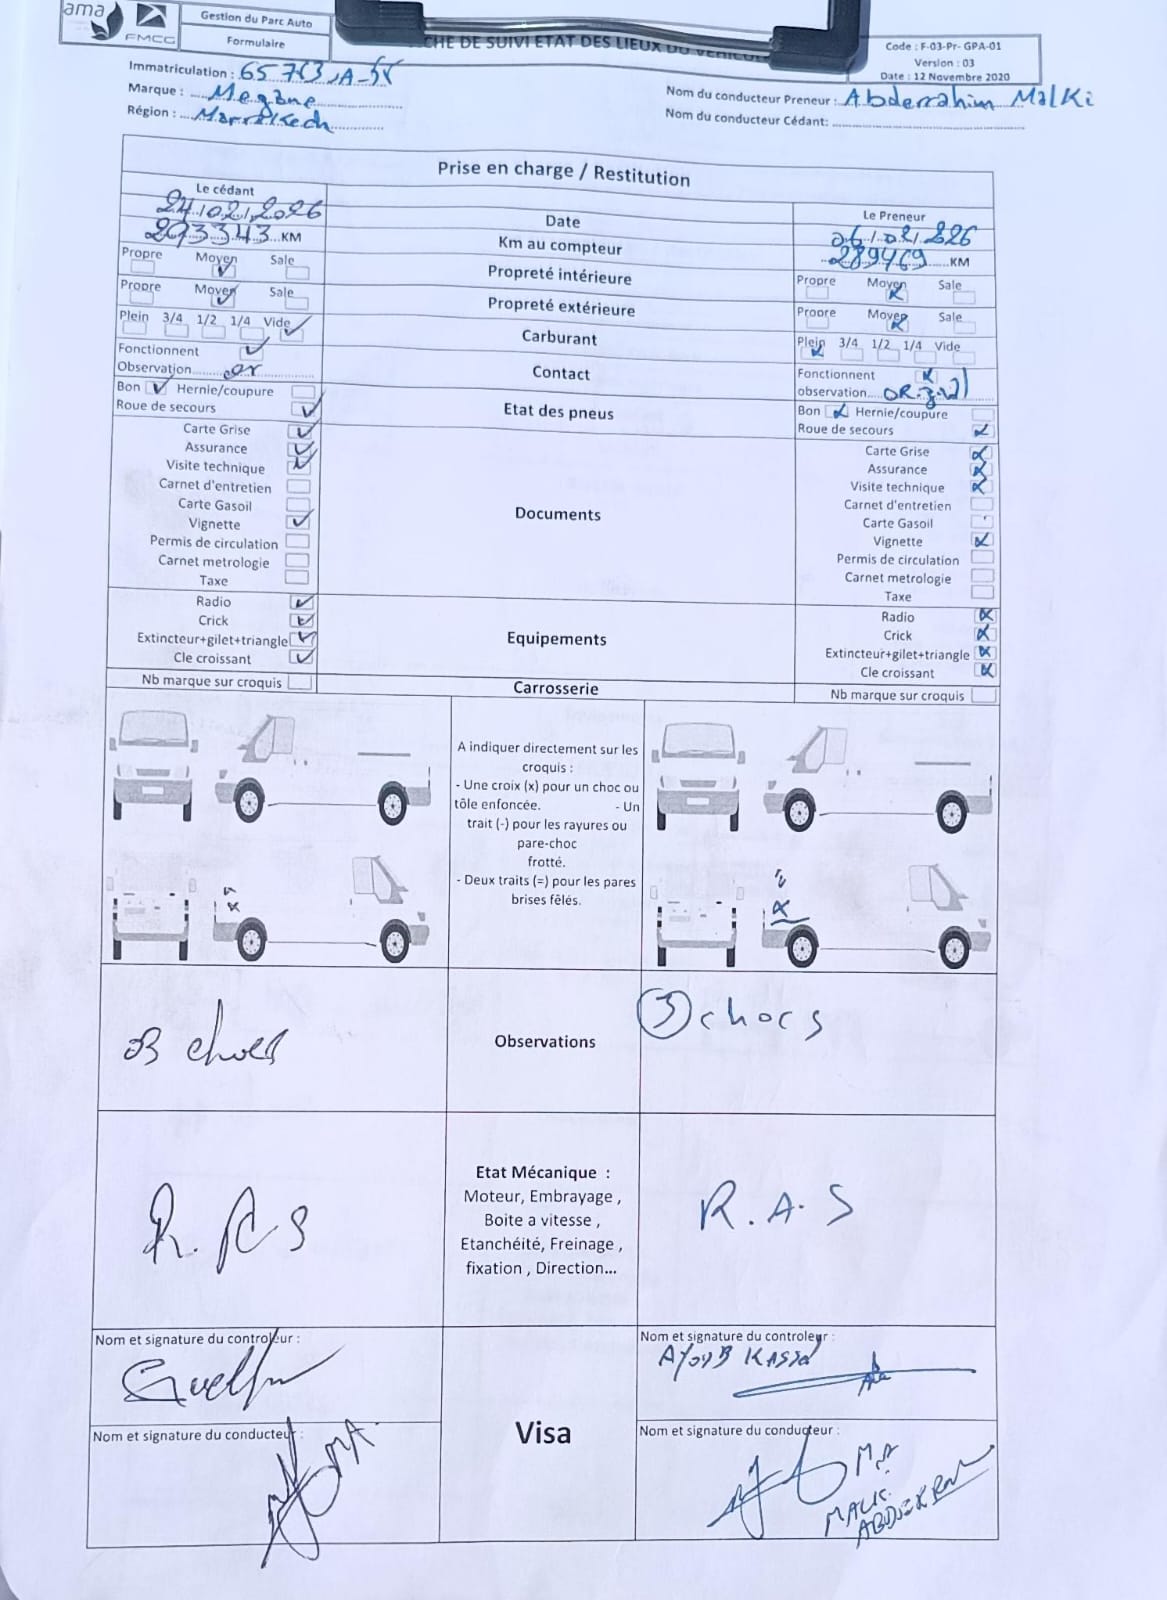 ama
FMCG
Gestion du Parc Auto
Formulaire
CHE DE SUIVI ETAT DES LIEUX DU VEHICUL
Code : F-03-Pr- GPA-01
Version : 03
Date : 12 Novembre 2020
Immatriculation :
Marque : Megane
Région : Marrakech
Nom du conducteur Preneur : Abderrahim Malki
Nom du conducteur Cédant:
Prise en charge / Restitution
Le cédant
Le Preneur
24/02/2026
Date
06/02/2026
293343 KM
Km au compteur
289469 KM
Propre Moyen Sale
Propreté intérieure
Propre Moyen Sale
Propre Moyen Sale
Propreté extérieure
Propre Moyen Sale
Plein 3/4 1/2 1/4 Vide
Carburant
Plein 3/4 1/2 1/4 Vide
Fonctionnent
Observation
Contact
Fonctionnent
observation
Bon Hernie/coupure
Roue de secours
Etat des pneus
Bon Hernie/coupure
Roue de secours
Carte Grise
Assurance
Visite technique
Carnet d'entretien
Carte Gasoil
Vignette
Permis de circulation
Carnet metrologie
Taxe
Documents
Carte Grise
Assurance
Visite technique
Carnet d'entretien
Carte Gasoil
Vignette
Permis de circulation
Carnet metrologie
Taxe
Radio
Crick
Extincteur+gilet+triangle
Cle croissant
Equipements
Radio
Crick
Extincteur+gilet+triangle
Cle croissant
Nb marque sur croquis
Carrosserie
Nb marque sur croquis
A indiquer directement sur les
croquis :
- Une croix (x) pour un choc ou
tôle enfoncée. - Un
trait (-) pour les rayures ou
pare-choc
frotté.
- Deux traits (=) pour les pares
brises fêlés.
03 chocs
Observations
3 chocs
R.A.S
Etat Mécanique :
Moteur, Embrayage ,
Boite a vitesse ,
Etanchéité, Freinage ,
fixation , Direction...
R.A.S
Nom et signature du controleur :
Visa
Nom et signature du controleur :
Nom et signature du conducteur :
Nom et signature du conducteur :